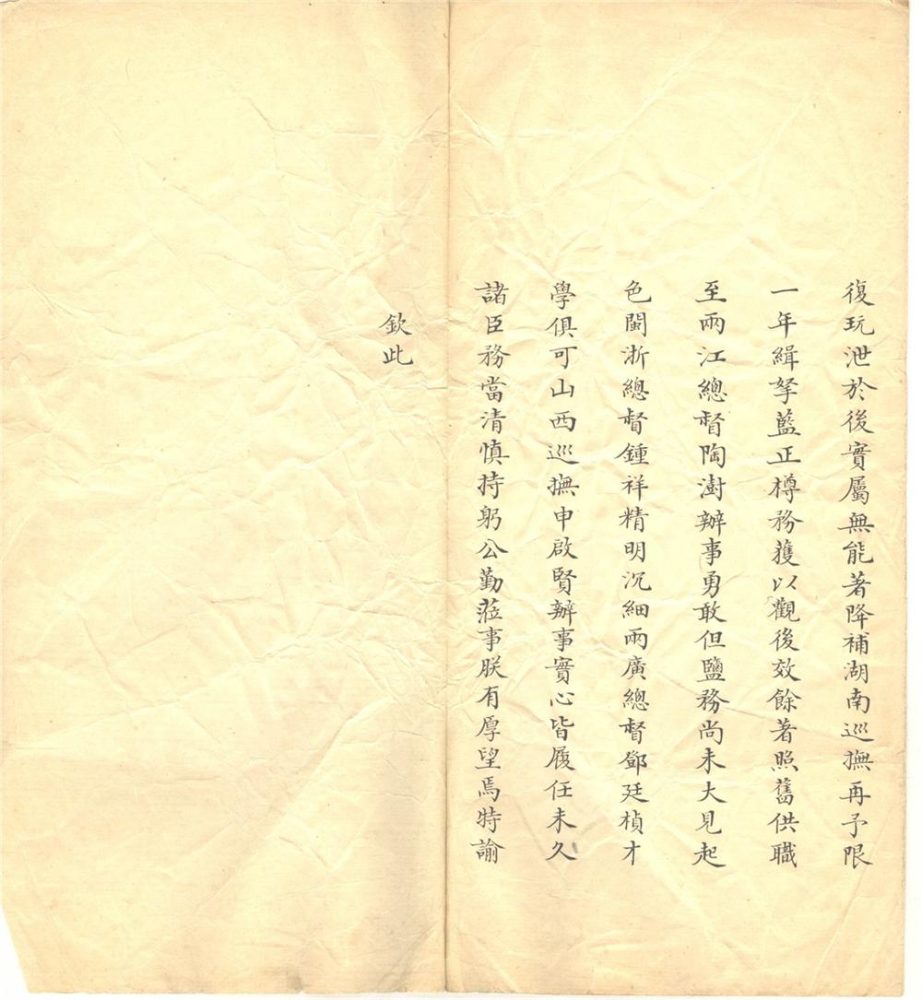 復玩泄於後實屬無能著降補湖南巡撫再予限
一年緝拏藍正樽務獲以觀後效餘著照舊供職
至兩江總督陶澍辦事勇敢但鹽務尚未大見起
色閩浙總督鍾祥精明沉細兩廣總督鄧廷楨才
學俱可山西巡撫申啟賢辦事實心皆履任未久
諸臣務當清慎持躬公勤蒞事朕有厚望焉特諭
欽此